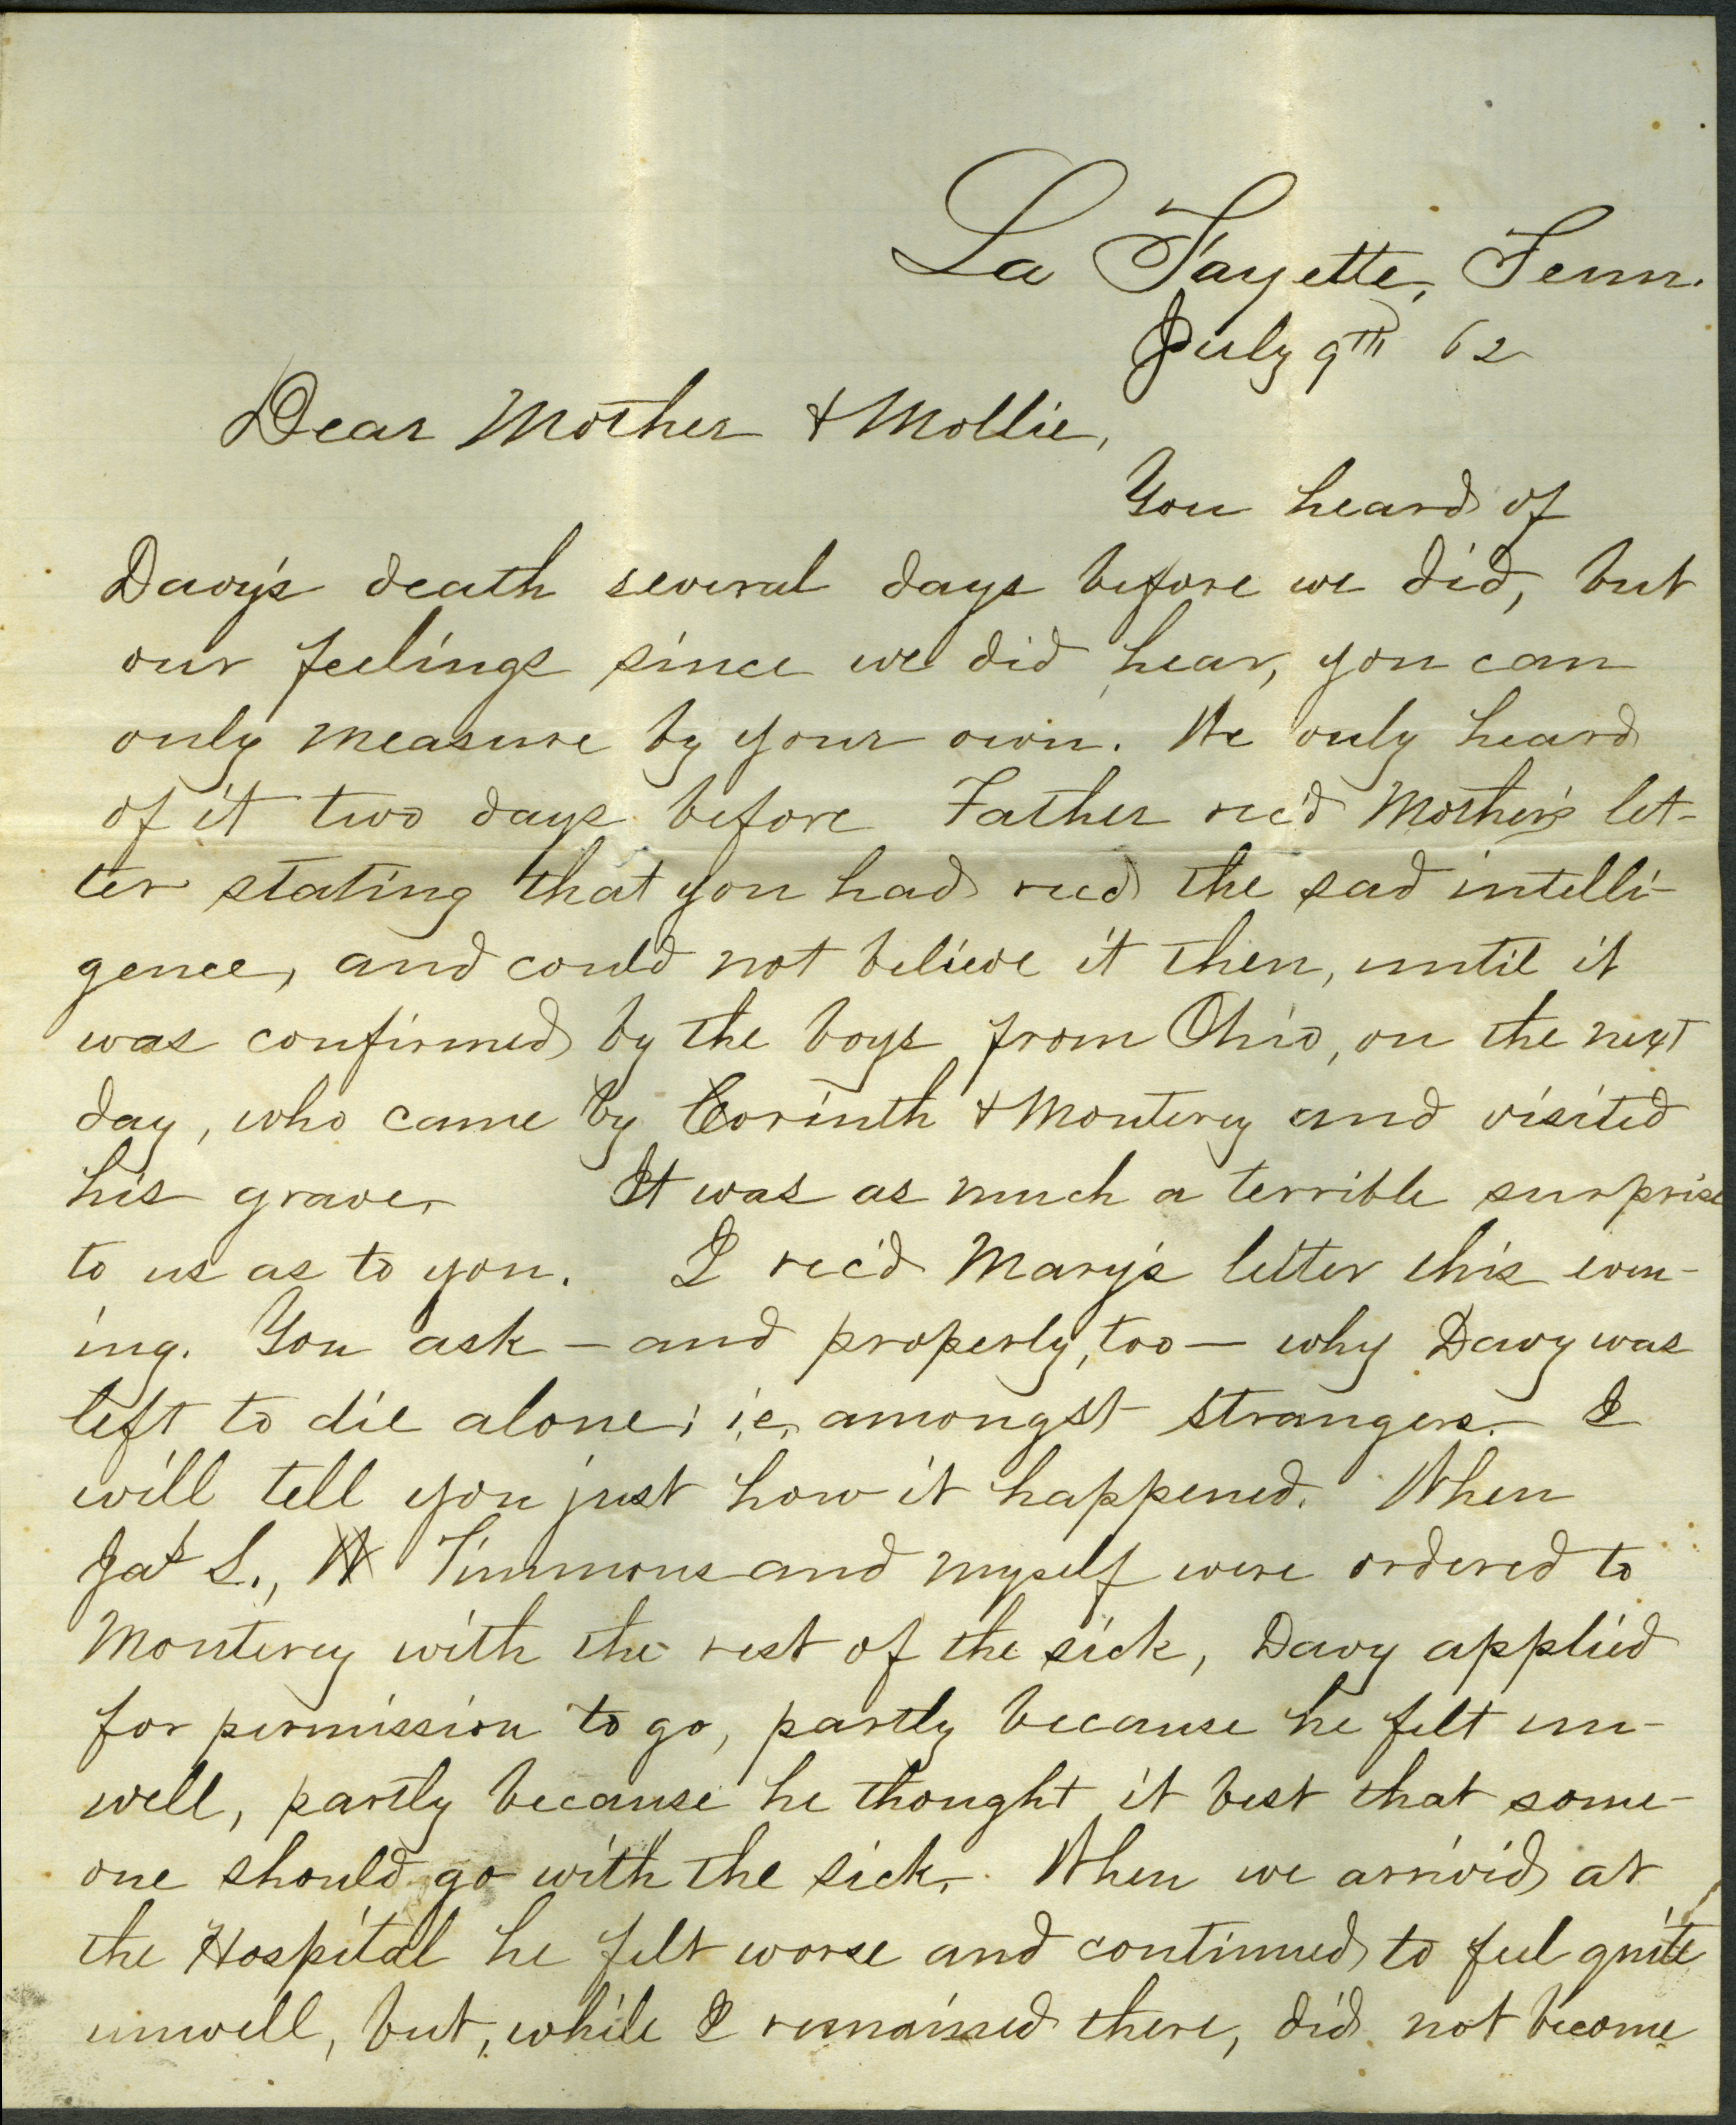 La Fayette, Tenn.
July 9th 62
Dear Mother & Mollie,
You heard of
Davy's death several days before we did, but
our feelings since we did hear, you can
only measure by your own. We only heard
of it two days before Father rec'd Mother's let-
ter stating that you had recd the sad intelli-
gence, and could not believe it then, until it
was confirmed by the boys from Ohio, on the next
day, who came by Corinth & Monterey and visited
his grave. It was as much a terrible surprise
to us as to you. I rec'd Mary's letter this even-
ing. You ask – and properly, too – why Davy was
left to die alone; i.e. amongst strangers. I
will tell you just how it happened. When
Jas S., Timmons and myself were ordered to
Monterey with the rest of the sick, Davy applied
for permission to go, partly because he felt un-
well, partly because he thought it best that some-
one should go with the sick. When we arrived at
the Hospital he felt worse and continued to feel quite
unwell, but, while I remained there, did not become